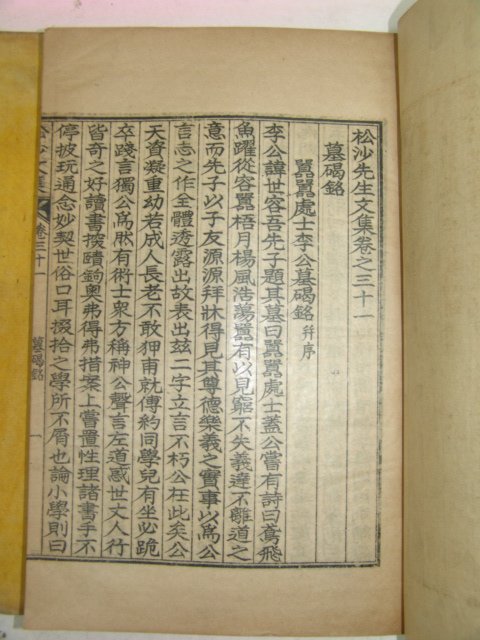 松沙先生文集卷之三十一
墓碣銘
囂囂處士李公墓碣銘 幷序
李公諱世容吾先子題其墓曰囂囂處士蓋公嘗有詩曰鳶飛
魚躍從容囂梧月楊風浩蕩囂有以見窮不失義達不離道之
意而先子以子友源源拜牀得見其尊德樂義之實事以爲公
言志之作全體透露出故表出玆二字立言不朽公在此矣公
天資凝重幼若成人長老不敢狎甫就傅約同學兒有坐必跪
卒踐言獨公爲肰有術士衆方稱神公聲言左道惑世丈人行
皆奇之好讀書探賾鉤奧弗得弗措案上嘗置性理諸書手不
停披玩通念妙契世俗口耳掇拾之學所不屑也論小學則曰
松沙文集 卷三十一 墓碣銘 一